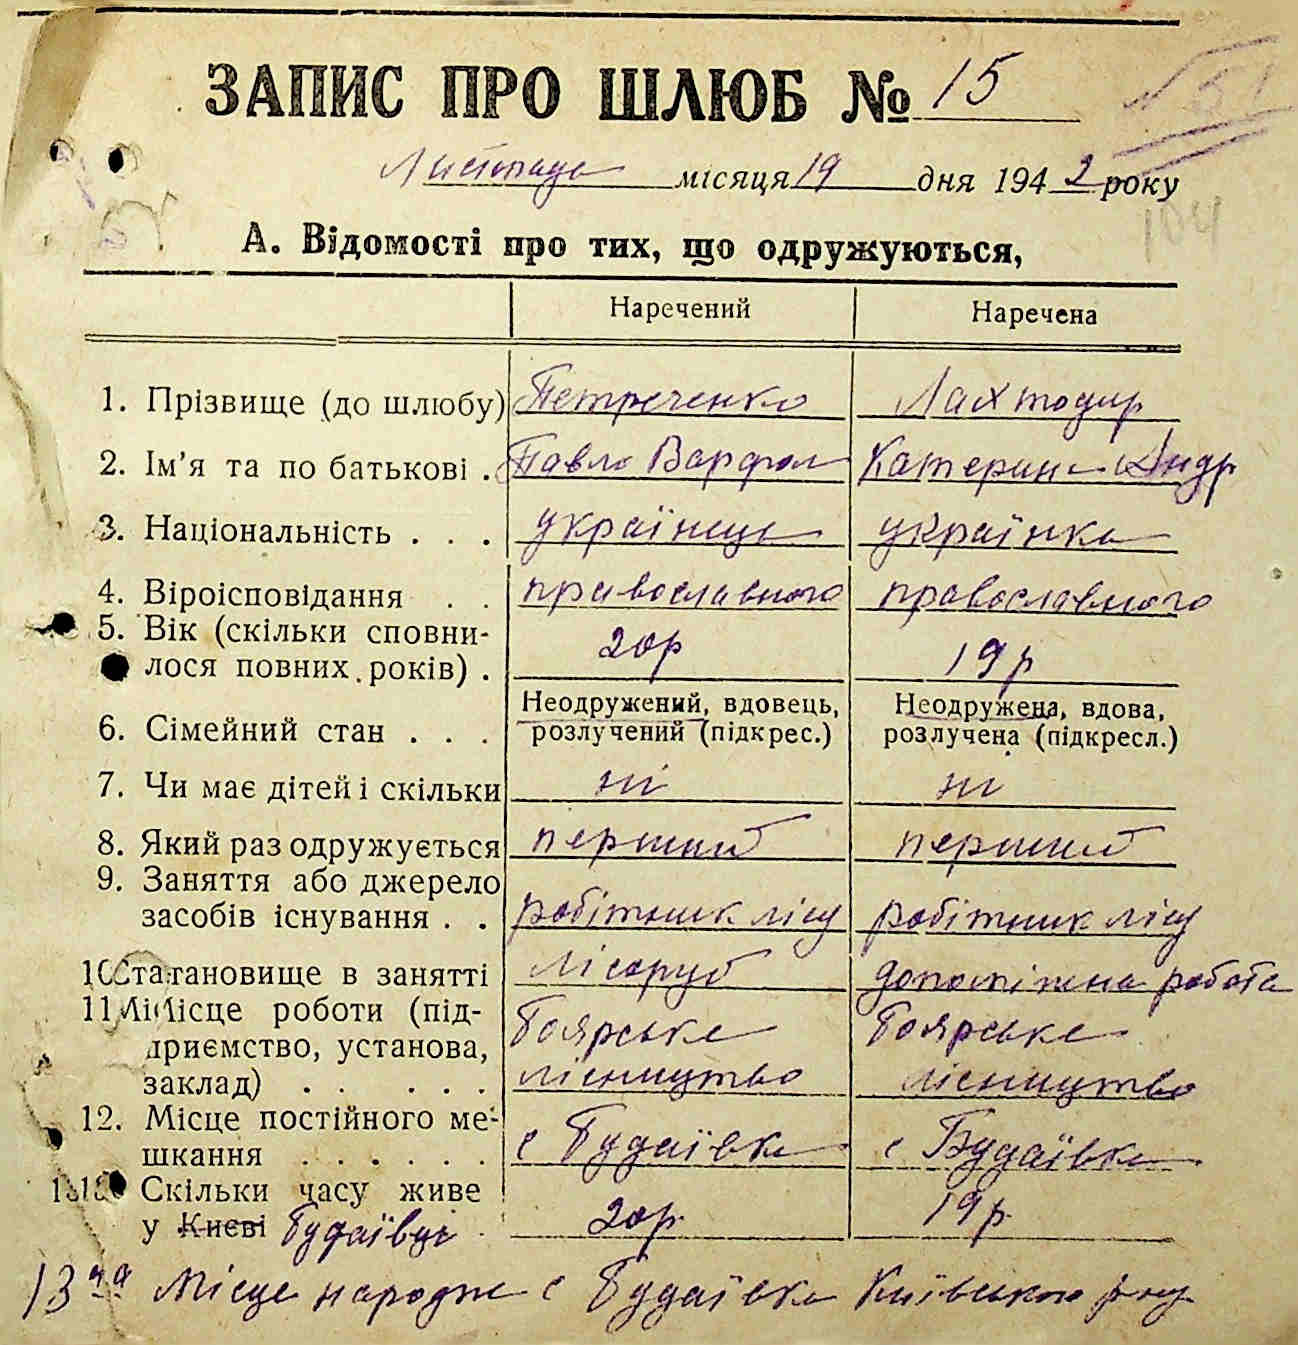 ЗАПИС ПРО ШЛЮБ № 15
№ 51
Листопада місяця 19 дня 1942 року
104
А. Відомості про тих, що одружуються,
Наречений Наречена
1. Прізвище (до шлюбу) Петреченко Лахтодир
2. Ім'я та по батькові . Павло Варфол Катерина Андр
3. Національність . . . українець українка
4. Віроісповідання . . православного православного
5. Вік (скільки сповни-
лося повних років) . 20р 19р
6. Сімейний стан . . . Неодружений, вдовець, розлучений (підкрес.) Неодружена, вдова, розлучена (підкресл.)
7. Чи має дітей і скільки ні ні
8. Який раз одружується перший перший
9. Заняття або джерело
засобів існування . . робітник лісу робітник лісу
10. Становище в занятті лісоруб допоміжна робота
11. Місце роботи (під- Боярське Боярське
приємство, установа,
заклад) . . . . . лісництво лісництво
12. Місце постійного ме-
шкання . . . . . . с Будаївка с Будаївка
13. Скільки часу живе
у Києві Будаївці 20р. 19р.
13 а Місце народж с Будаївка Київського р-ну